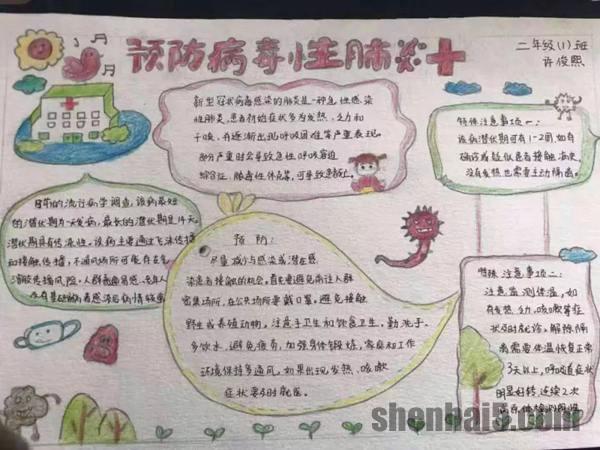 预防病毒性肺炎
二年级(1)班
许俊熙
新型冠状病毒感染的肺炎是一种急性感染
性肺炎,患者初始症状多为发热、乏力和
干咳,再逐渐出现呼吸困难等严重表现。
部分严重时会导致急性呼吸窘迫
综合征、脓毒性休克等,可导致患者死亡。
特殊注意事项一:
该病潜伏期可有1-2周,如有
确诊或疑似患者接触病史,
没有发热也需要主动隔离。
目前的流行病学调查,该病最短
的潜伏期为一天发病,最长的潜伏期是14天。
潜伏期具有传染性。该病主要通过飞沫传播
和接触传播,不通风场所可能存在气
溶胶传播风险。人群普遍易感,老年人
及有基础病者感染后病情较重
预防:
尽量减少与感染或潜在感
染患者接触的机会,首先要避免前往人群
密集场所,在公共场所要戴口罩。避免接触
野生或养殖动物。注意手卫生和饮食卫生,勤洗手。
多饮水,避免疲劳,加强身体锻炼,家庭和工作
环境保持多通风。如果出现发热、咳嗽
症状要及时就医。
特殊注意事项二:
注意监测体温,如
有发热、乏力、咳嗽等症
状及时就诊。解除隔
离需要体温恢复正常
3天以上,呼吸道症状
明显好转,连续2次
病原体检测阴性
shenhai5.com